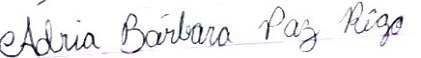 Adria Bárbara Paz Rigo